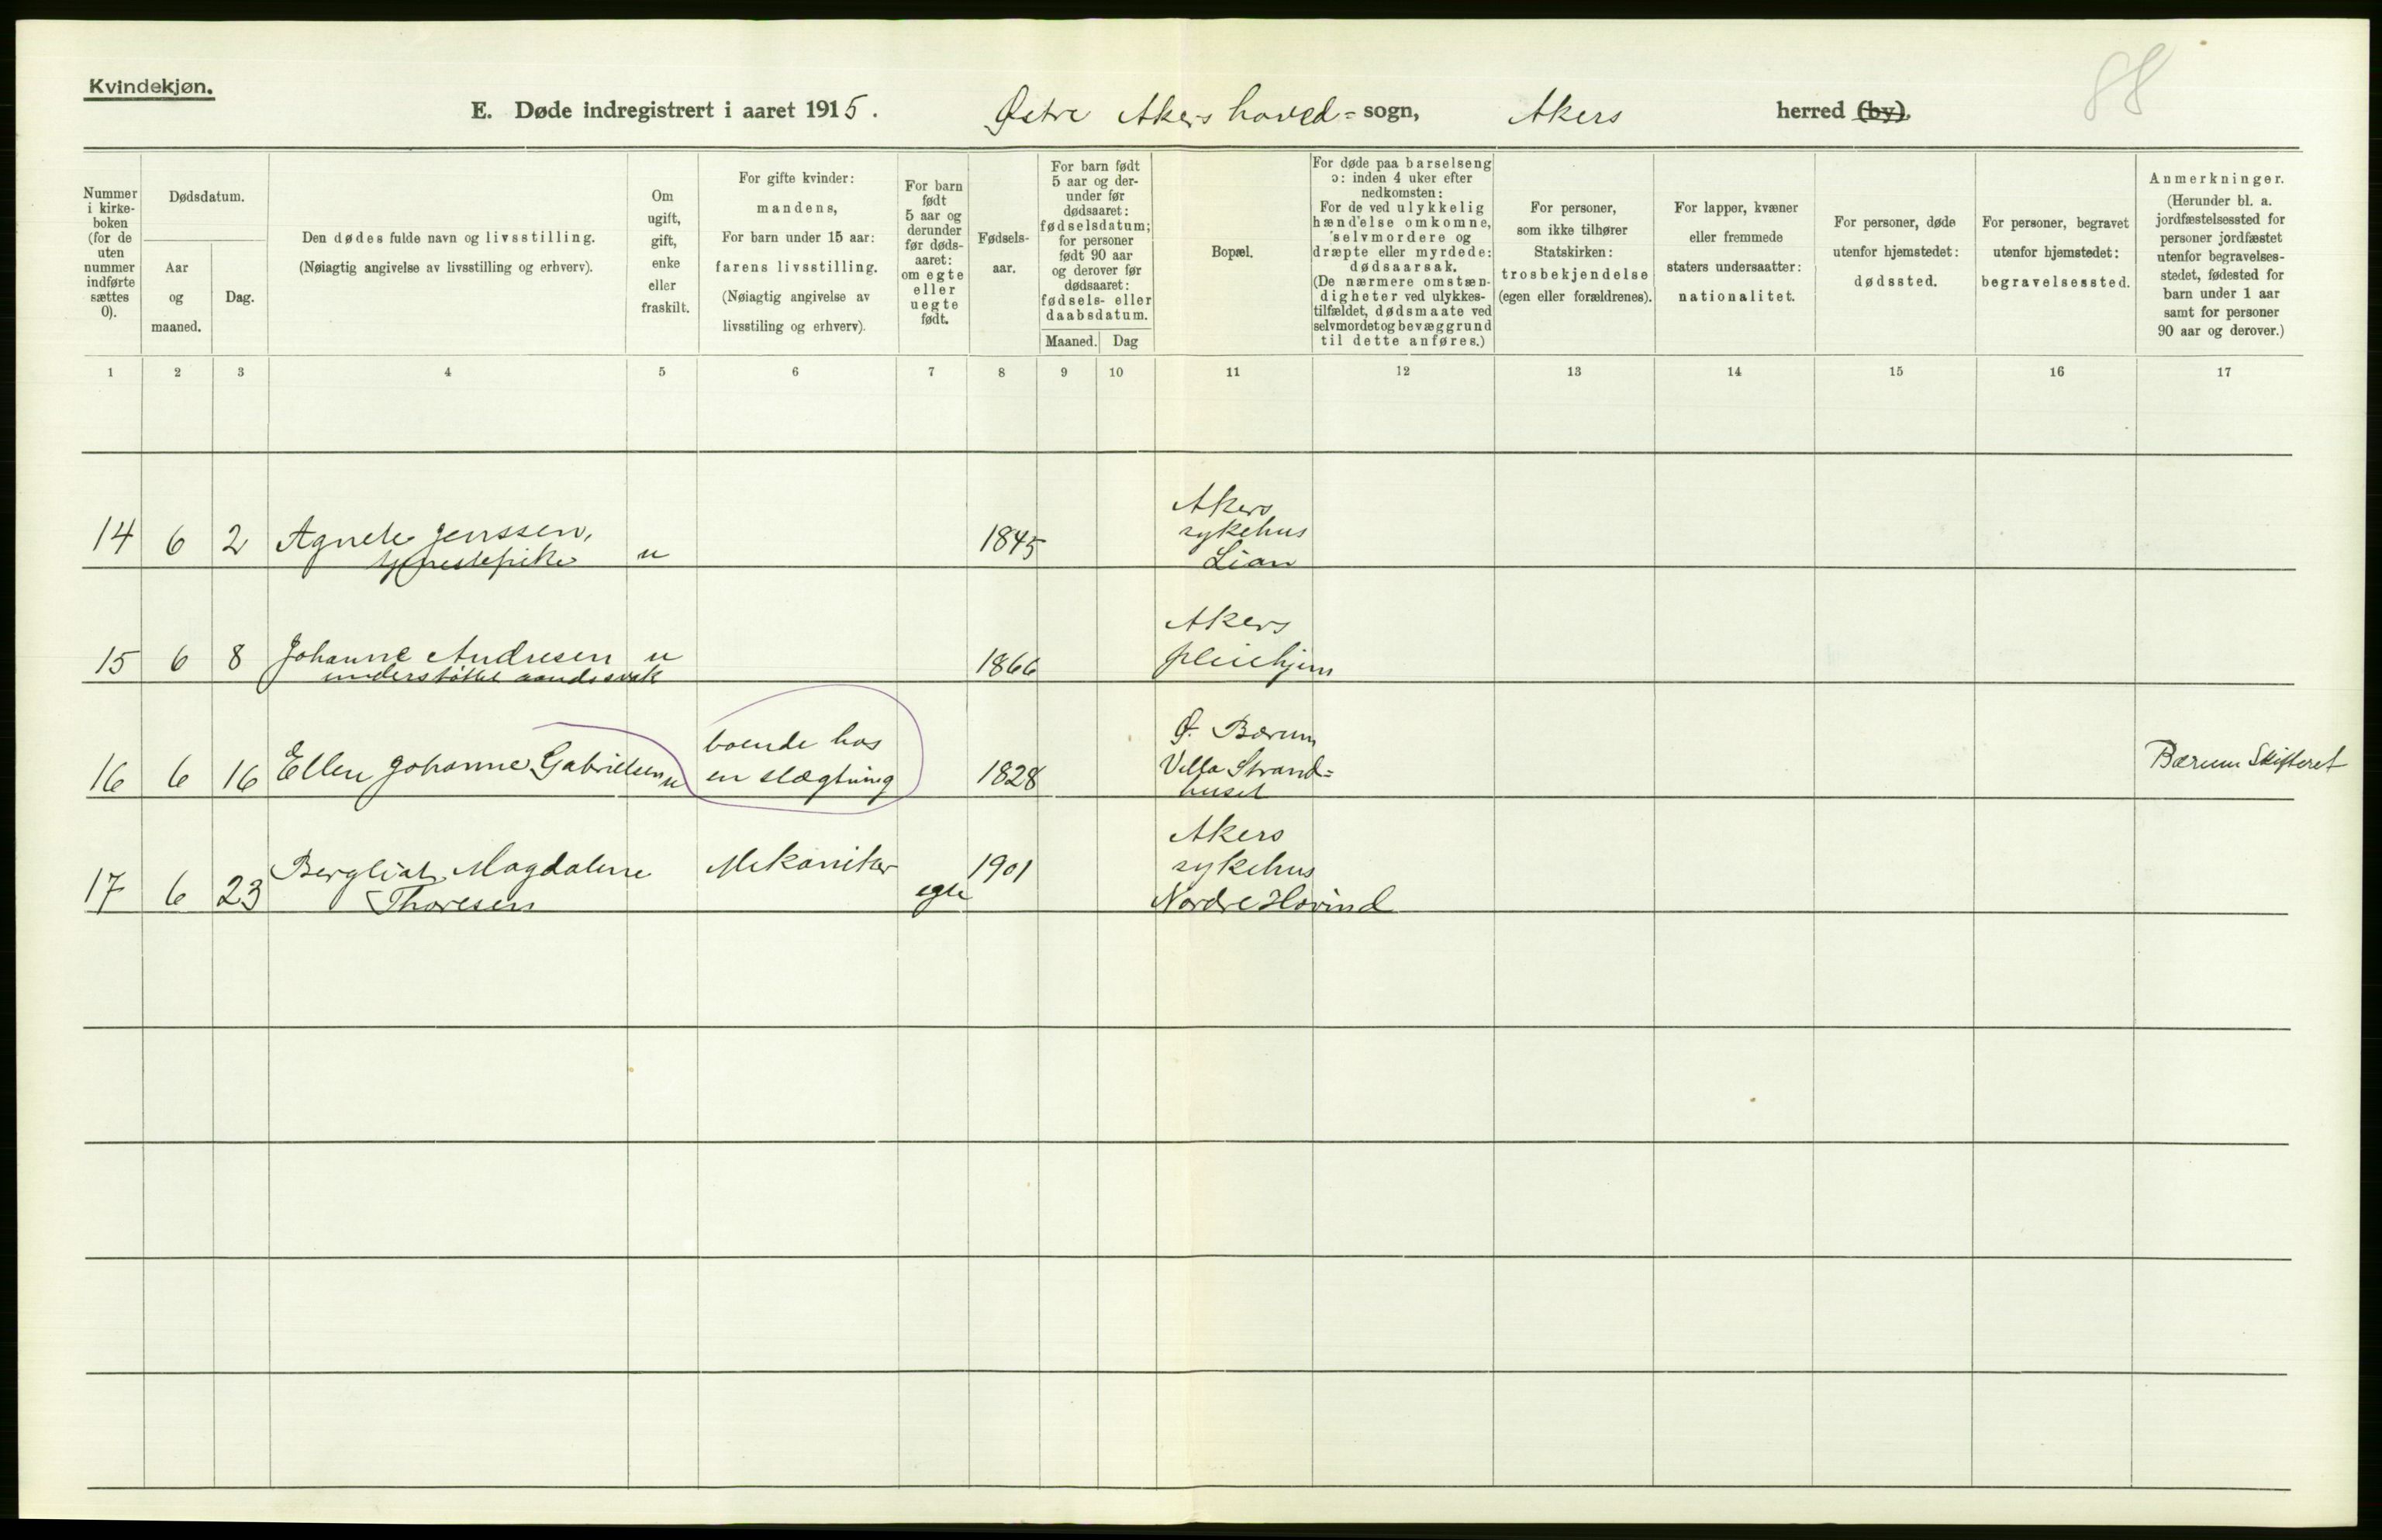 Kvindekjøn.
88
E. Døde indregistrert i aaret 1915. Østre Akers hoved= sogn, Akers herred (by).
Nummer
i kirke-
boken
(for de
uten
nummer
indførte
sættes
0).
Dødsdatum.
Aar
og
maaned.
Dag.
Den dødes fulde navn og livsstilling.
(Nøiagtig angivelse av livsstilling og erhverv).
Om
ugift,
gift,
enke
eller
fraskilt.
For gifte kvinder:
mandens,
For barn under 15 aar:
farens livsstilling.
(Nøiagtig angivelse av
livsstiling og erhverv).
For barn
født
5 aar og
derunder
før døds-
aaret:
om egte
eller
uegte
født.
Fødsels-
aar.
For barn født
5 aar og der-
under før
dødsaaret:
fødselsdatum;
for personer
født 90 aar
og derover før
dødsaaret:
fødsels- eller
daabsdatum.
Maaned. Dag
Bopæl.
For døde paa barselseng
ɔ: inden 4 uker efter
nedkomsten:
For de ved ulykkelig
hændelse omkomne,
selvmordere og
dræpte eller myrdede:
dødsaarsak.
(De nærmere omstæn-
digheter ved ulykkes-
tilfældet, dødsmaate ved
selvmordet og bevæggrund
til dette anføres.)
For personer,
som ikke tilhører
Statskirken:
trosbekjendelse
(egen eller forældrenes).
For lapper, kvæner
eller fremmede
staters undersaatter:
nationalitet.
For personer, døde
utenfor hjemstedet:
dødssted.
For personer, begravet
utenfor hjemstedet:
begravelsessted.
Anmerkninger.
(Herunder bl. a.
jordfæstelsessted for
personer jordfæstet
utenfor begravelses-
stedet, fødested for
barn under 1 aar
samt for personer
90 aar og derover.)
1 2 3 4 5 6 7 8 9 10 11 12 13 14 15 16 17
14 6 2 Agnete Jenssen,
tjenestepike u 1845
Akers
sykehus
Lian
15 6 8 Johanne Andresen u 1866
understøttet aandssvak
Akers
pleiehjem
16 6 16 Ellen Johanne Gabrielsen u
boende hos
en slægtning
1828
Ø. Bærum
Villa Strand=
huset
Bærum Skifteret
17 6 23 Bergliot Magdalene
Thoresen
Mekaniker
egte
1901
Akers
sykehus
Nordre Hovind